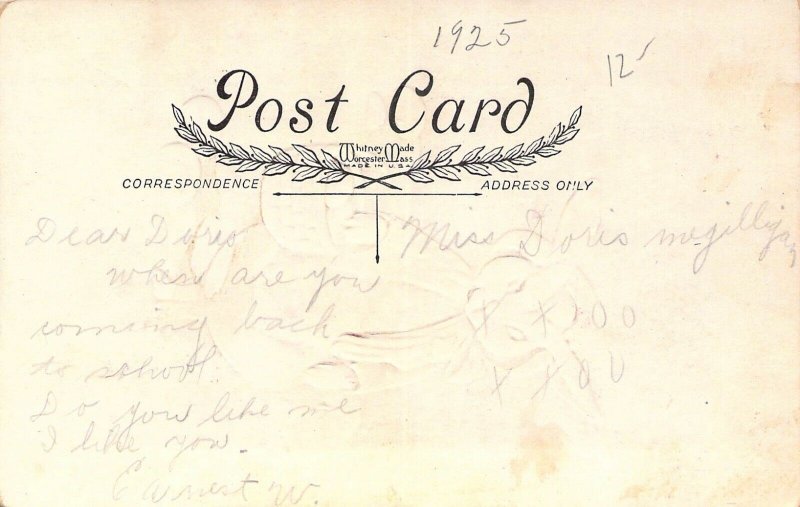 1925
12
Post Card
Whitney Made
Worcester Mass
MADE IN U.S.A
CORRESPONDENCE
ADDRESS ONLY
Dear Doris
when are you
comming back
to school.
Do you like me
I like you.
Earnest W.
Miss Doris mcgilligan
X X X O O
X X O O